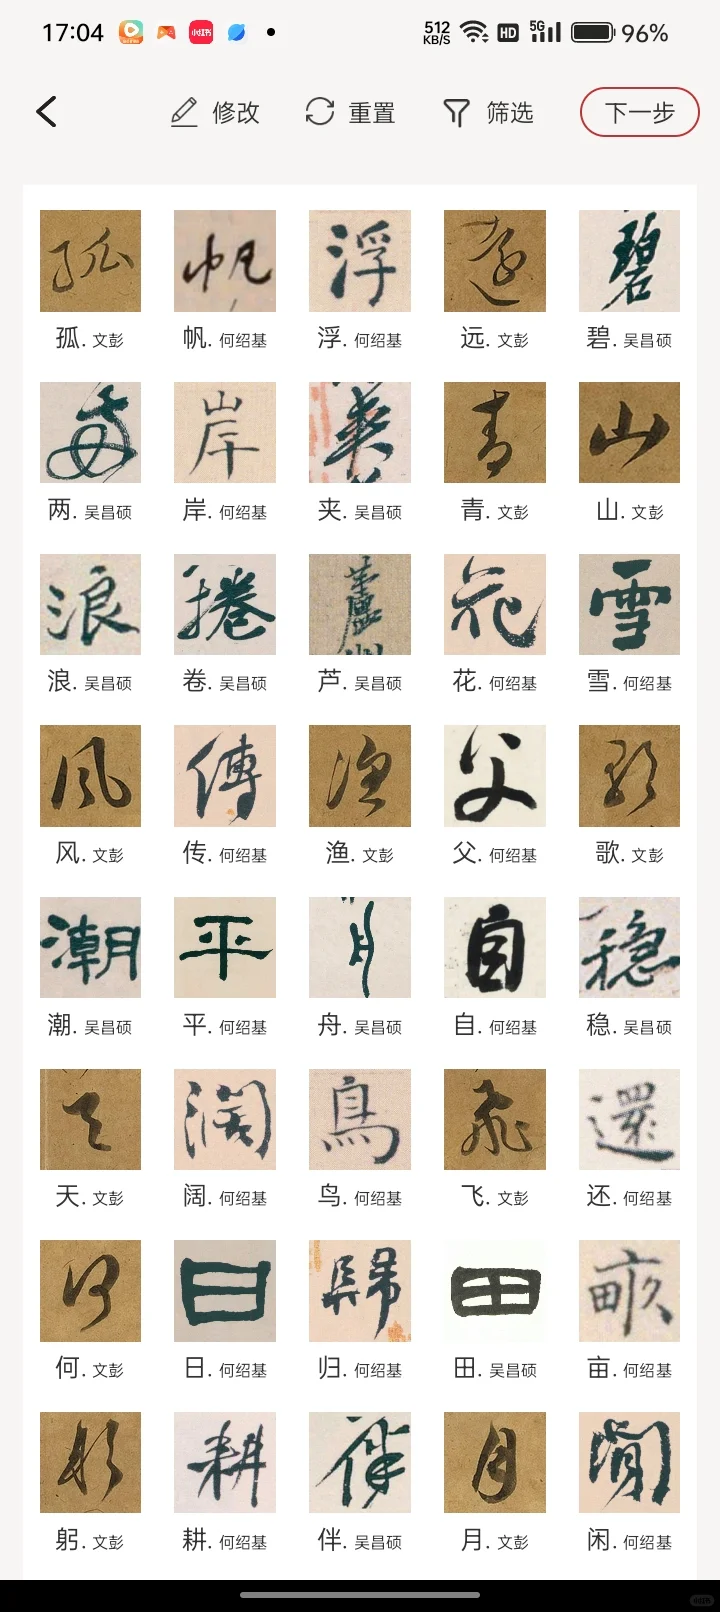 17:04 512 KB/S HD 5G 96%
修改 重置 筛选 下一步
孤 帆 浮 遠 碧
孤. 文彭 帆. 何绍基 浮. 何绍基 远. 文彭 碧. 吴昌硕
兩 岸 夾 青 山
两. 吴昌硕 岸. 何绍基 夹. 吴昌硕 青. 文彭 山. 文彭
浪 捲 蘆 花 雪
浪. 吴昌硕 卷. 吴昌硕 芦. 吴昌硕 花. 何绍基 雪. 何绍基
风 傳 渔 父 歌
风. 文彭 传. 何绍基 渔. 文彭 父. 何绍基 歌. 文彭
潮 平 舟 自 穏
潮. 吴昌硕 平. 何绍基 舟. 吴昌硕 自. 何绍基 稳. 吴昌硕
天 闊 鳥 飛 還
天. 文彭 阔. 何绍基 鸟. 何绍基 飞. 文彭 还. 何绍基
何 日 歸 田 畝
何. 文彭 日. 何绍基 归. 何绍基 田. 吴昌硕 亩. 何绍基
躬 耕 伴 月 閒
躬. 文彭 耕. 何绍基 伴. 吴昌硕 月. 文彭 闲. 何绍基